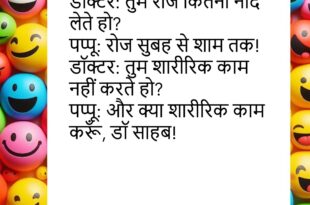 डॉक्टर: तुम रोज कितनी नींद
लेते हो?
पप्पू: रोज सुबह से शाम तक!
डॉक्टर: तुम शारीरिक काम
नहीं करते हो?
पप्पू: और क्या शारीरिक काम
करूँ, डॉ साहब!